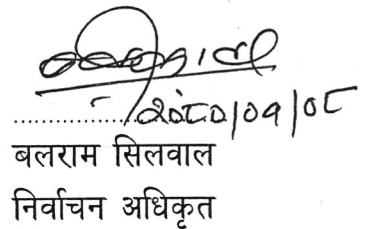 २०८०/०१/०८
बलराम सिलवाल
निर्वाचन अधिकृत